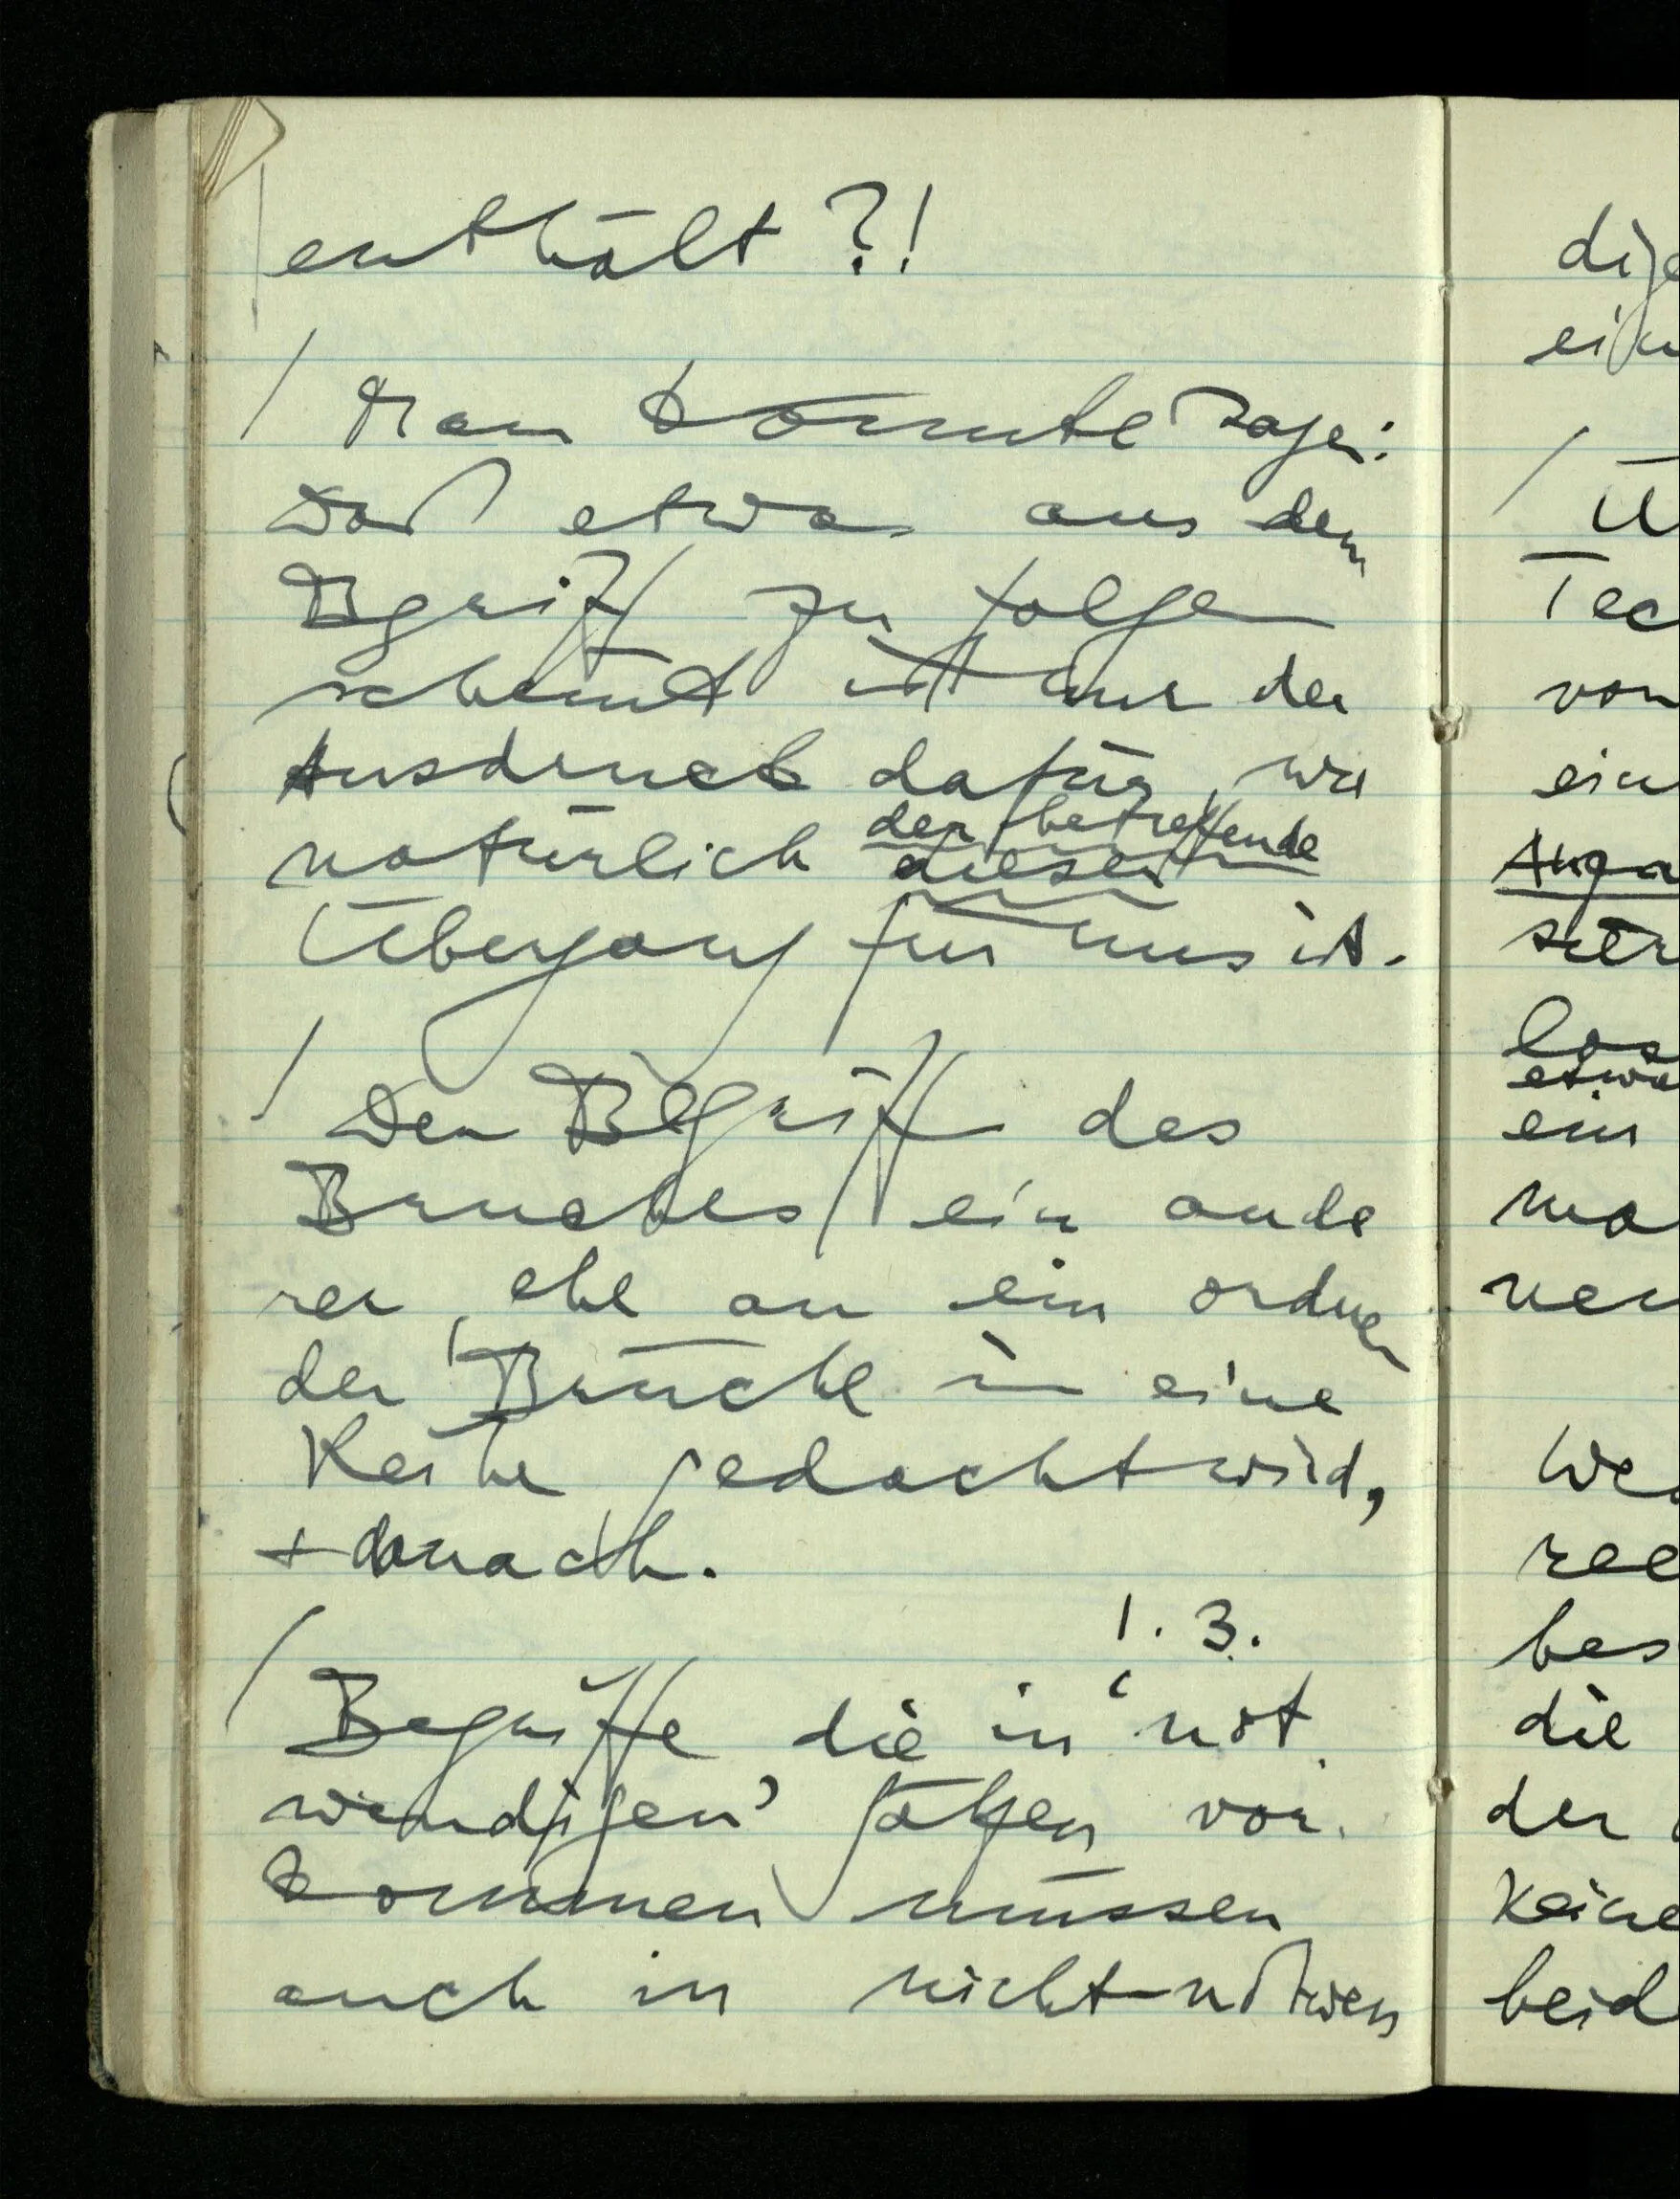 enthält ?!
/ Man könnte sagen:
Daß etwas aus dem
Bgriff zu folgen
scheint ist nur der
Ausdruck dafür, wie
der betreffende
natürlich dieser
Übergang für uns ist.
/ Der Begriff des
Bruches ein ande
rer, ehe an ein ordnen
der Brüche in eine
Reihe gedacht wird,
+ danach.
1. 3.
/ Begriffe die in ‘not
wendigen’ Sätzen vor
kommen müssen
auch in nicht-notwen
dige
ein
/
Tec
von
ein
los
etwa
ein
ma
ree
bes
die
der
keine
beid